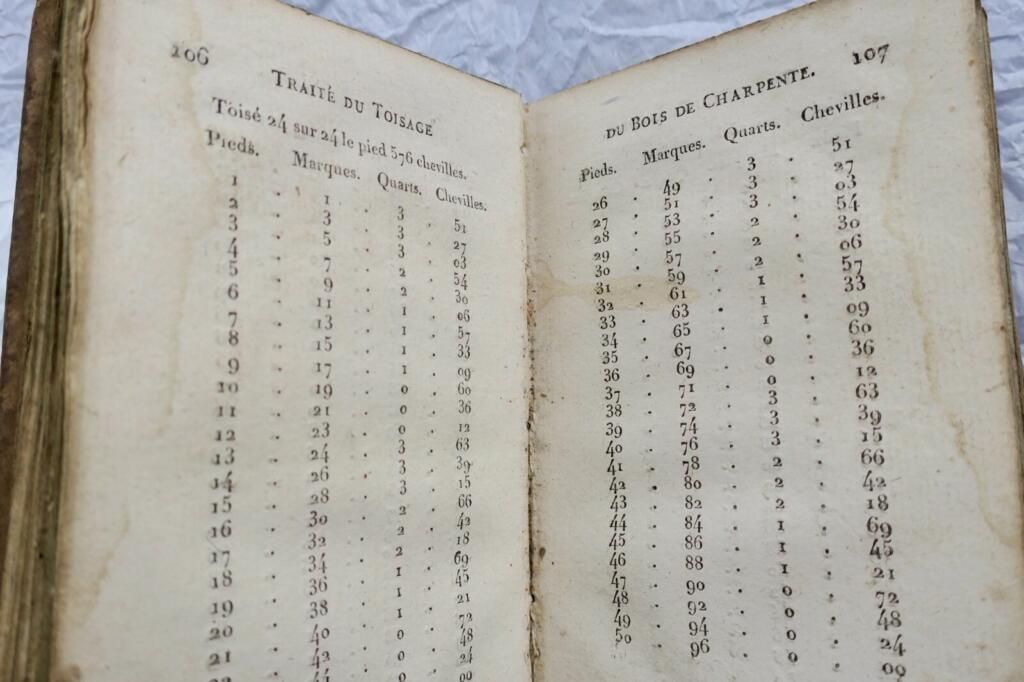 206
TRAITÉ DU TOISAGE
Toisé 24 sur 24 le pied 576 chevilles.
Pieds. Marques. Quarts. Chevilles.
1 . 1 . 3 . 51
2 . 3 . 3 . 27
3 . 5 . 3 . 03
4 . 7 . 2 . 54
5 . 9 . 2 . 30
6 . 11 . 1 . 06
7 . 13 . 1 . 57
8 . 15 . 1 . 33
9 . 17 . 1 . 09
10 . 19 . 0 . 60
11 . 21 . 0 . 36
12 . 23 . 0 . 12
13 . 24 . 3 . 63
14 . 26 . 3 . 39
15 . 28 . 3 . 15
16 . 30 . 2 . 66
17 . 32 . 2 . 42
18 . 34 . 2 . 18
19 . 36 . 1 . 69
20 . 38 . 1 . 45
21 . 40 . 1 . 21
22 . 42 . 0 . 72
44 . 0 . 48
0 . 24
00
107
DU BOIS DE CHARPENTE.
Pieds. Marques. Quarts. Chevilles.
26 . 49 . 3 . 51
27 . 51 . 3 . 27
28 . 53 . 3 . 03
29 . 55 . 2 . 54
30 . 57 . 2 . 30
31 . 59 . 2 . 06
32 . 61 . 1 . 57
33 . 63 . 1 . 33
34 . 65 . 1 . 09
35 . 67 . 0 . 60
36 . 69 . 0 . 36
37 . 71 . 0 . 12
38 . 72 . 3 . 63
39 . 74 . 3 . 39
40 . 76 . 3 . 15
41 . 78 . 2 . 66
42 . 80 . 2 . 42
43 . 82 . 2 . 18
44 . 84 . 1 . 69
45 . 86 . 1 . 45
46 . 88 . 1 . 21
47 . 90 . 0 . 72
48 . 92 . 0 . 48
49 . 94 . 0 . 24
50 . 96 . 0 . 00